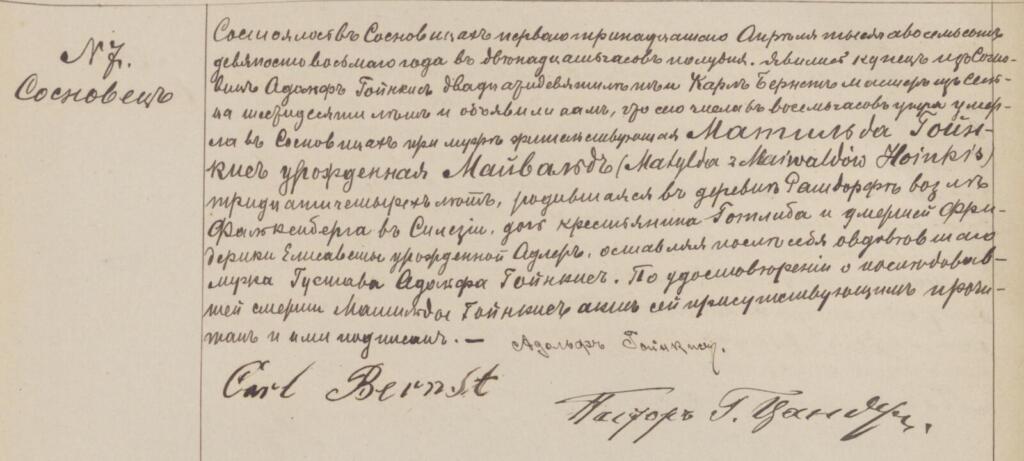 N 7.
Сосновецъ
Состоялось въ Сосновицахъ перваго тринадцатаго Апрѣля тысяча восемьсотъ
девяносто восьмаго года въ двѣнадцать часовъ полудня. Явились купецъ изъ Сосно-
вицъ Адольфъ Гойнкисъ двадцати девяти лѣтъ и Карлъ Бернстъ мастеръ изъ
шестидесяти лѣтъ и объявили намъ, что сего числа въ восемь часовъ утра умер-
ла въ Сосновицахъ при мужѣ жительствующая Матильда Гойн-
кисъ урожденная Майвальдъ (Matylda z Maiwaldów Hoinkis)
тридцати четырехъ лѣтъ, родившаяся въ деревнѣ Рашдорфъ возлѣ
Фалкенберга въ Силезіи, дочь крестьянина Готлиба и умершей Фри-
дерики Елисаветы урожденной Адлеръ, оставляя послѣ себя овдовѣвшаго
мужа Густава Адольфа Гойнкисъ. По удостовѣреніи о послѣдовав-
шей смерти Матильды Гойнкисъ актъ сей присутствующимъ прочи-
танъ и ими подписанъ. —
Адольфъ Гойнкисъ.
Carl Bernst
Пасторъ Г. Цандеръ.